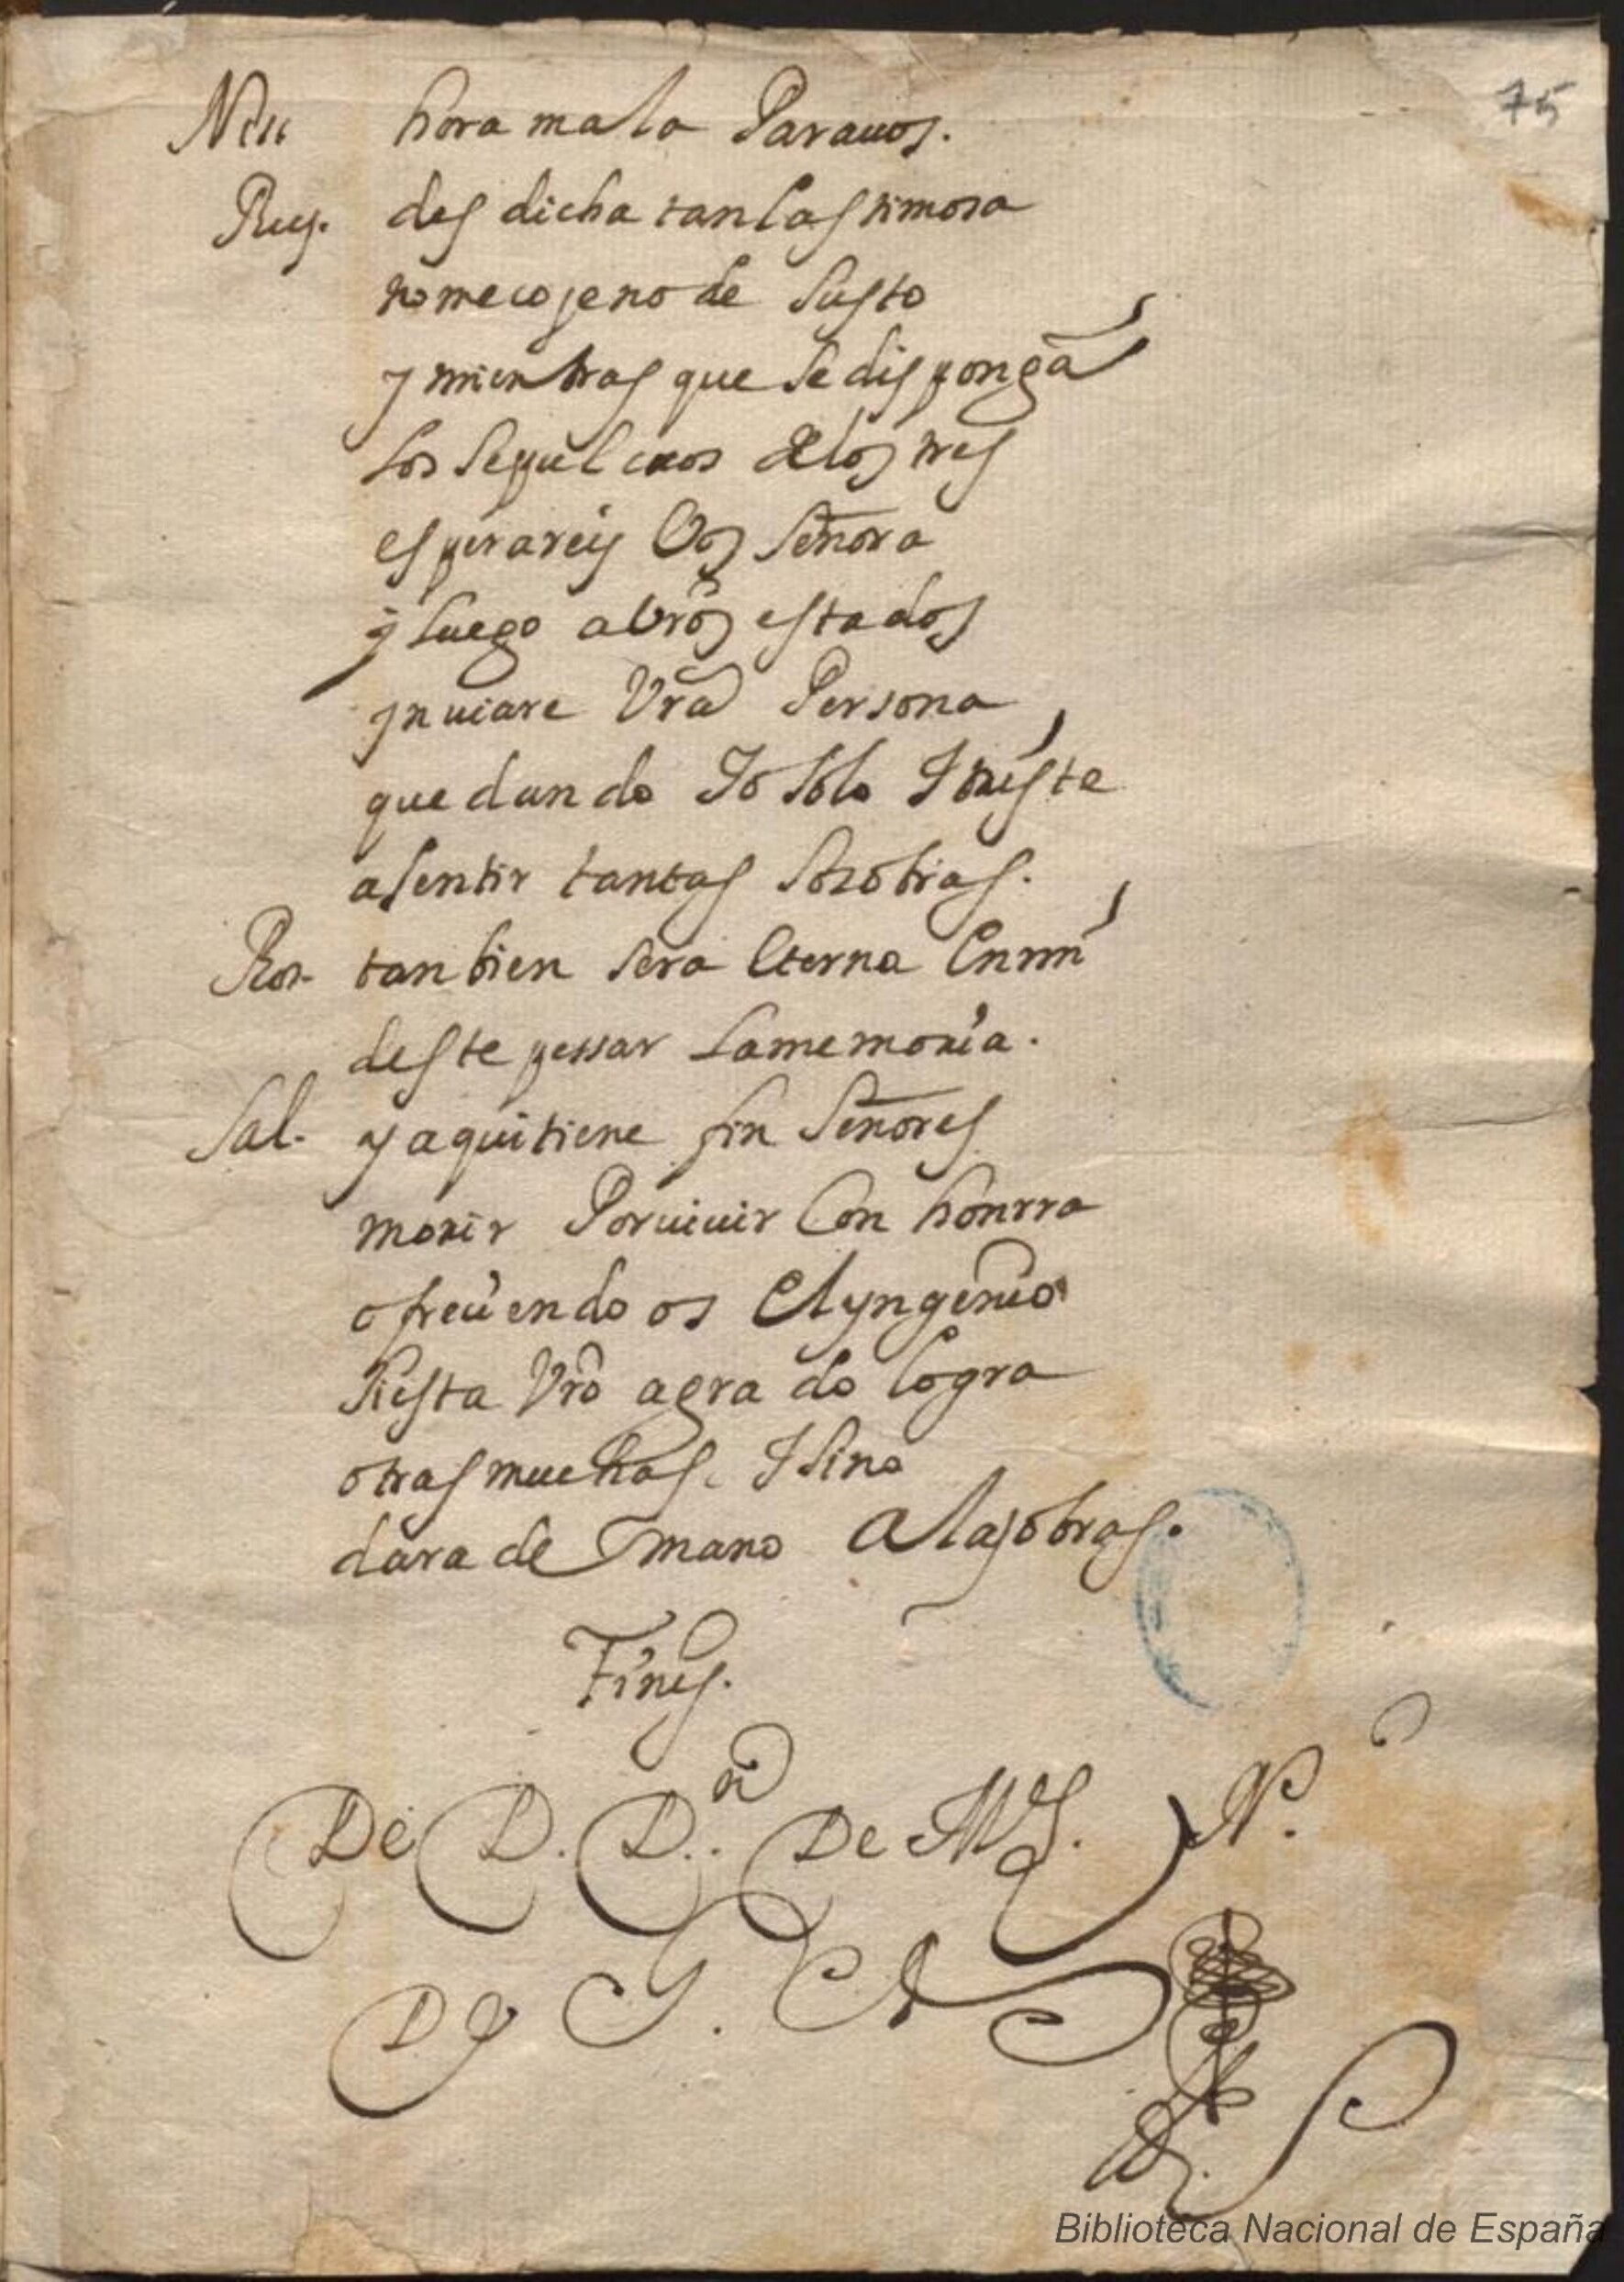 75
hora mala Parauos.
Rey. des dicha tan lastimosa
no me coje no de susto
y mientras que se dispongã
los sepulcros de los tres
esperareis Vos Señora
y luego a Vrõs estados
ynuiare Vrã Persona
que dando Yo solo Y triste
a sentir tantas sosobras.
Ros. tan bien sera Eterna En mi
deste pessar la memoria.
Sal. y aqui tiene fin Señores
morir Por uiuir Con honrra
ofreciendo os El yngenio
si esta Vrõ agra do logra
otras muchas. Y sino
dara de mano A las obras.
Fines.
De D. D.n De Ms. N.
Biblioteca Nacional de España